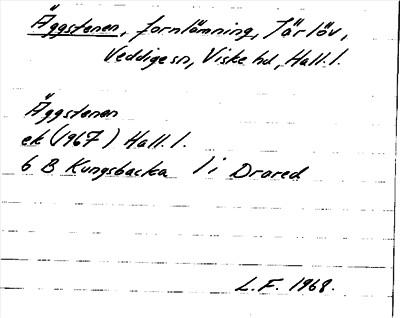 Äggstenen, fornlämning, Tärlöv,
Veddige sn, Viske hd, Hall. l.
Äggstenen
ek (1967) Hall. l.
6 B Kungsbacka 1 i Drared
L. F. 1968.